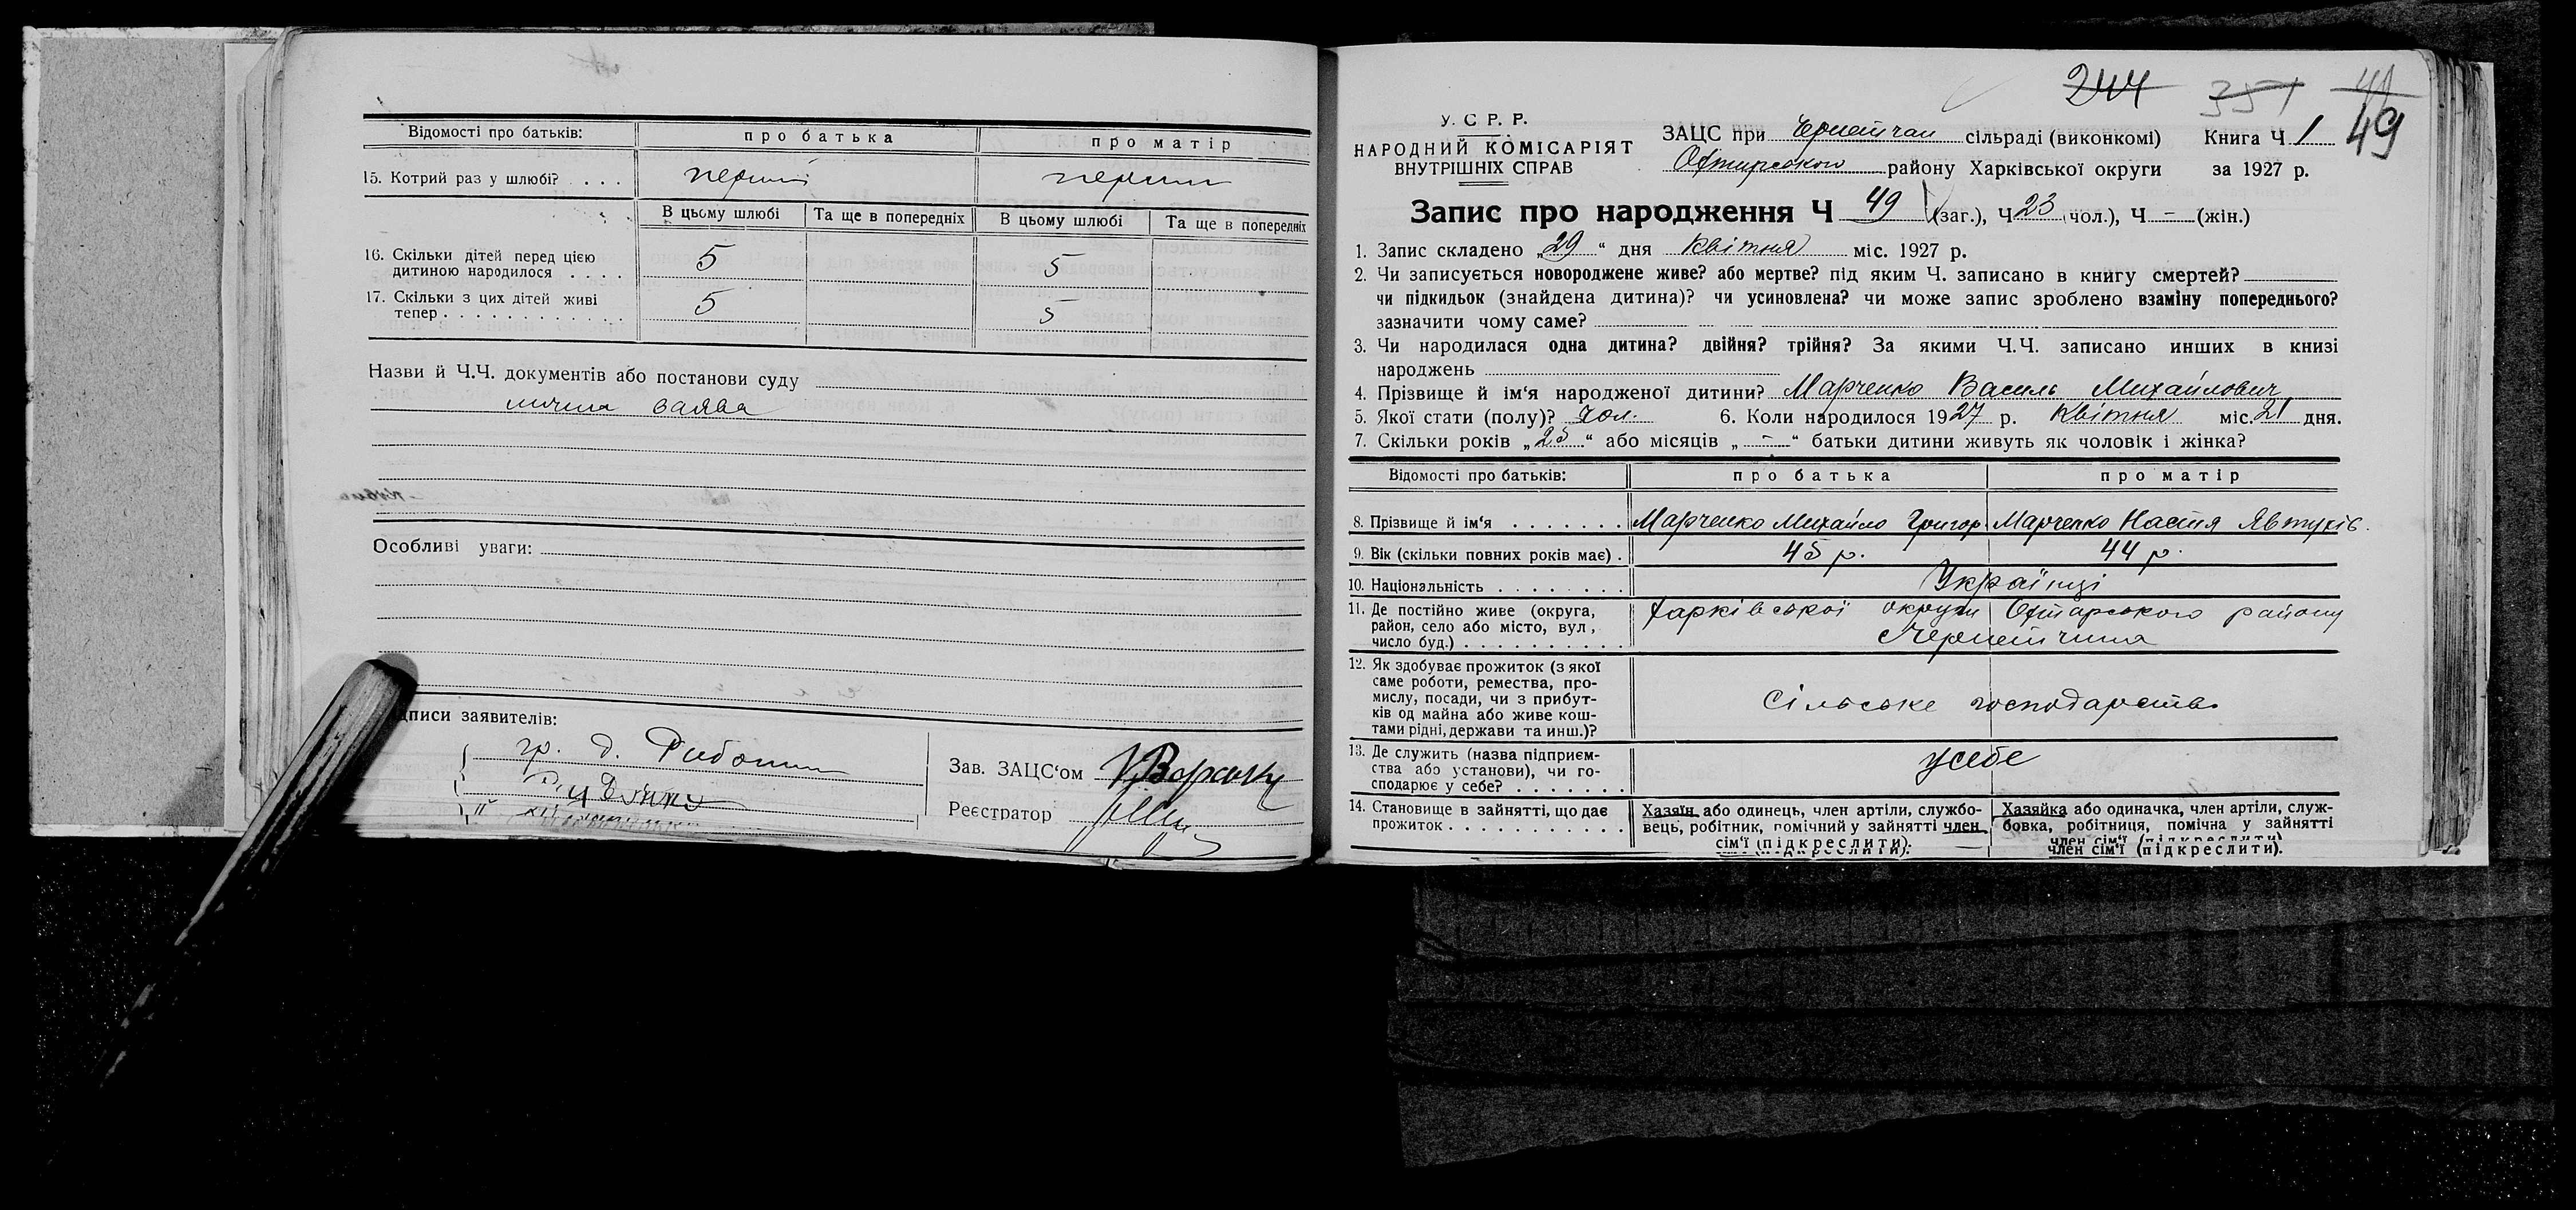 Відомості про батьків: про батька про матір
15. Котрий раз у шлюбі? . . . . перший перший
В цьому шлюбі Та ще в попередніх В цьому шлюбі Та ще в попередніх
16. Скільки дітей перед цією
дитиною народилося . . . . 5 5
17. Скільки з цих дітей живі
тепер . . . . . . . . . . . . 5 5
Назви й Ч.Ч. документів або постанови суду
заява
Особливі уваги:
писи заявителів:
гр. д.
Зав. ЗАЦС'ом
Реєстратор
244 351 49
У. С Р. Р.
НАРОДНИЙ КОМІСАРІЯТ
ВНУТРІШНІХ СПРАВ
ЗАЦС при сільраді (виконкомі) Книга Ч 1
Охтирського району Харківської округи за 1927 р.
Запис про народження Ч 49 (заг.), Ч 23 (чол.), Ч - (жін.)
1. Запис складено „29“ дня квітня міс. 1927 р.
2. Чи записується новороджене живе? або мертве? під яким Ч. записано в книгу смертей?
чи підкидьок (знайдена дитина)? чи усиновлена? чи може запис зроблено взаміну попереднього?
зазначити чому саме?
3. Чи народилася одна дитина? двійня? трійня? За якими Ч.Ч. записано инших в книзі
народжень
4. Прізвище й ім'я народженої дитини? Марченко Василь Михайлович
5. Якої стати (полу)? чол. 6. Коли народилося 1927 р. квітня міс. 21 дня.
7. Скільки років „23“ або місяців „-“ батьки дитини живуть як чоловік і жінка?
Відомості про батьків: про батька про матір
8. Прізвище й ім'я . . . . . . . Марченко Михайло Григор. Марченко Настя Явтухів.
9. Вік (скільки повних років має) . 45 р. 44 р.
10. Національність . . . . . . . . Українці
11. Де постійно живе (округа, Харківської округи Охтирського району
район, село або місто, вул, Чернетчина
число буд.) . . . . . . . . . .
12. Як здобуває прожиток (з якої
саме роботи, ремества, про-
мислу, посади, чи з прибут-
ків од майна або живе кош-
тами рідні, держави та инш.)? Сільське господарство
13. Де служить (назва підприєм-
ства або установи), чи го-
сподарює у себе? . . . . . . . у себе
14. Становище в зайнятті, що дає
прожиток . . . . . . . . . . .
Хазяїн або одинець, член артіли, службо-
вець, робітник, помічний у зайнятті член
сім'ї (підкреслити).
Хазяйка або одиначка, член артіли, служ-
бовка, робітниця, помічна у зайнятті
член сім'ї (підкреслити).